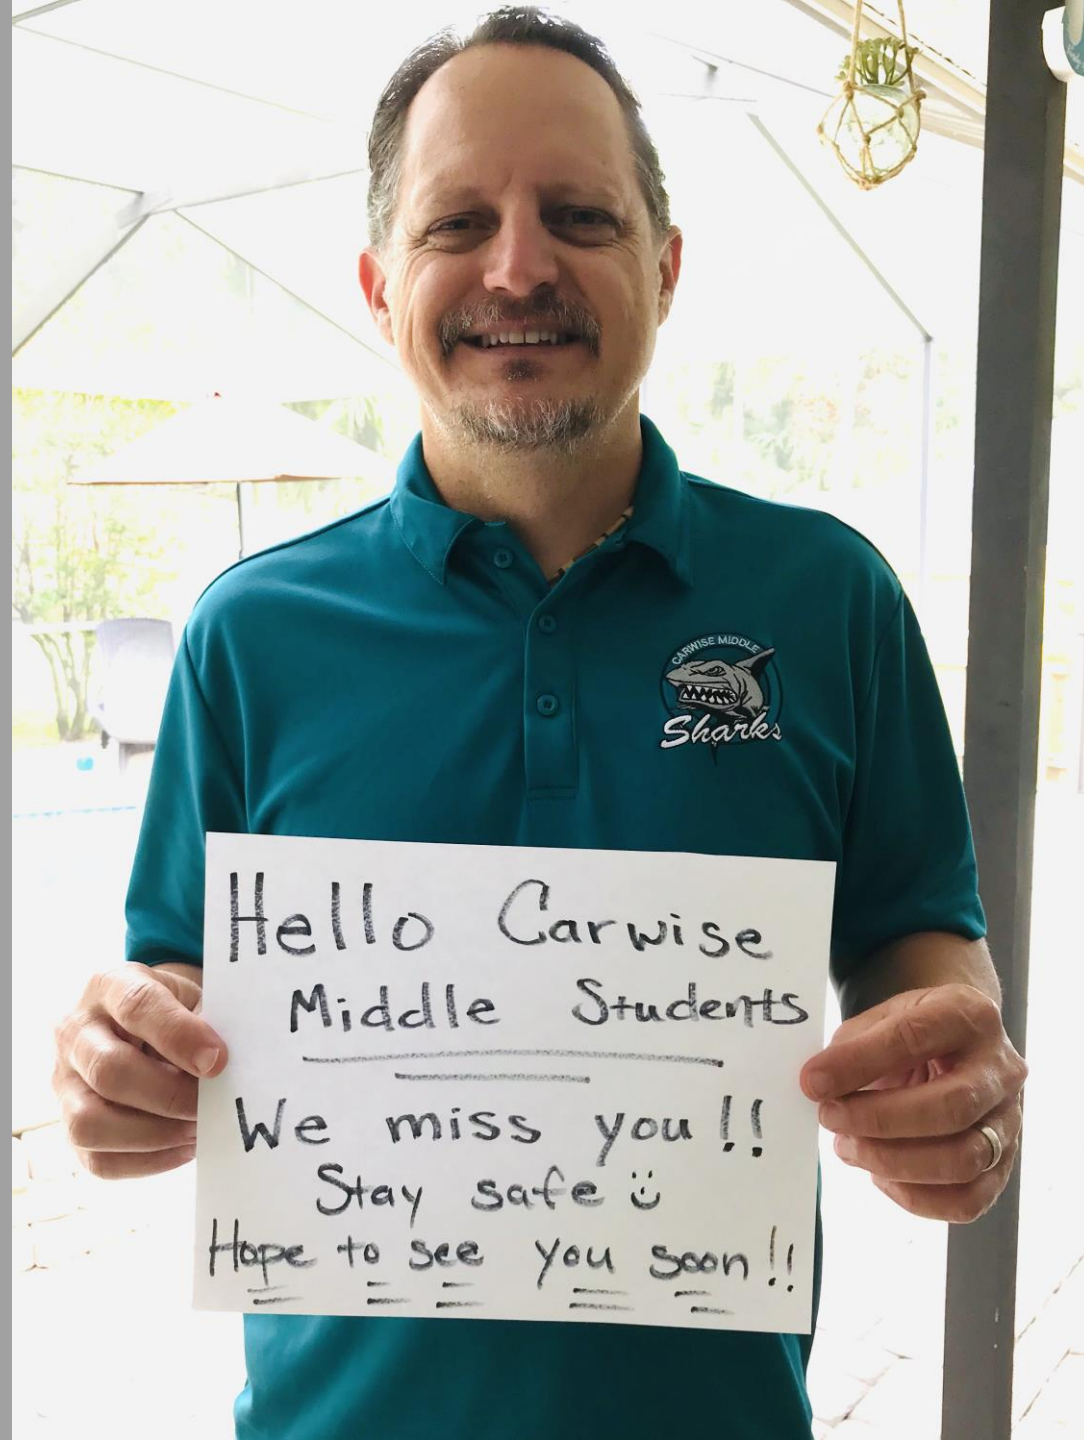 CARWISE MIDDLE
Sharks
Hello Carwise
Middle Students
We miss you!!
Stay safe
Hope to see you soon!!